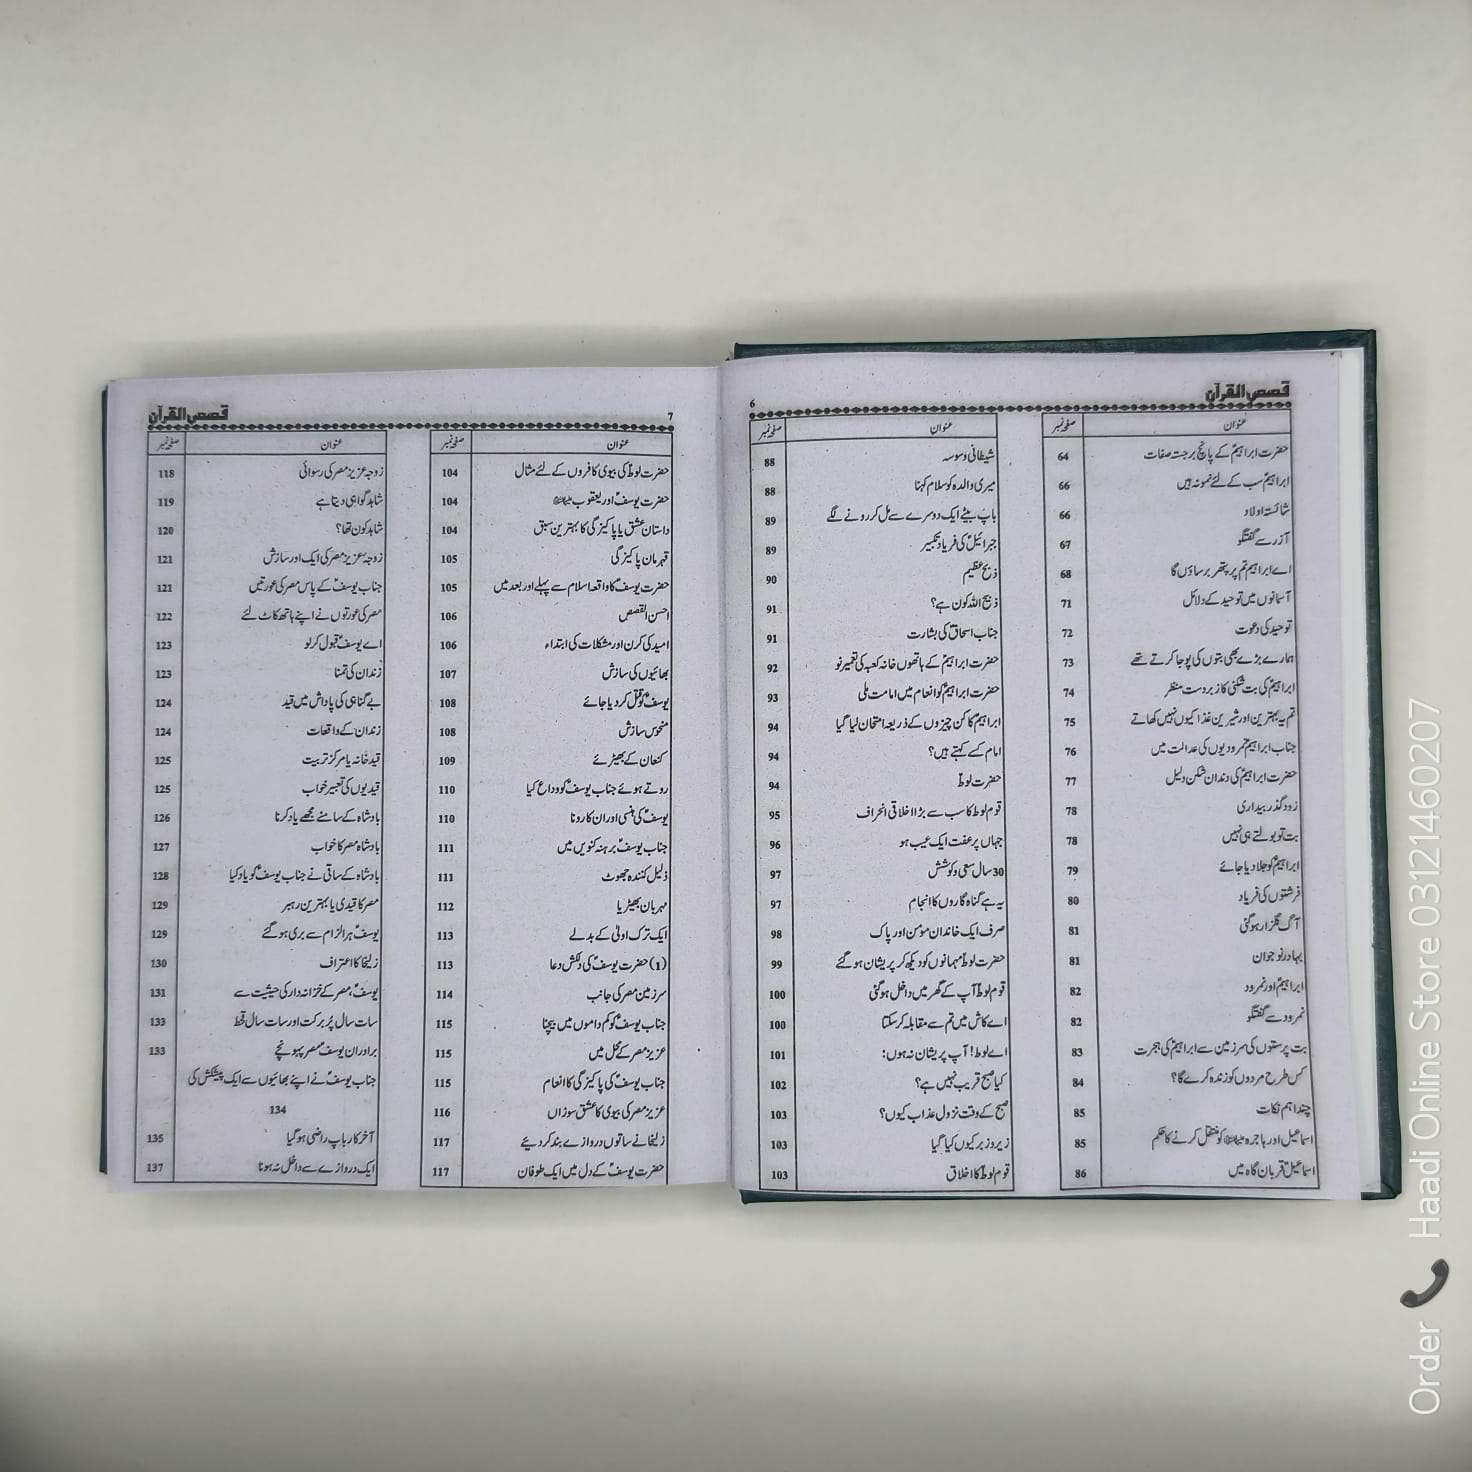 6
قصص القرآن
عنوان صفحہ نمبر
حضرت ابراہیمؑ کے پانچ برجستہ صفات 64
ابراہیمؑ سب کے لئے نمونہ ہیں 66
شائستہ اولاد 66
آزر سے گفتگو 67
اے ابراہیم تم پر پتھر برساؤں گا 68
آسمانوں میں توحید کے دلائل 71
توحید کی دعوت 72
ہمارے بڑے بھی بتوں کی پوجا کرتے تھے 73
ابراہیمؑ کی بت شکنی کا زبردست منظر 74
تم یہ بہترین اور شیرین غذا کیوں نہیں کھاتے 75
جناب ابراہیمؑ نمرودیوں کی عدالت میں 76
حضرت ابراہیمؑ کی دندان شکن دلیل 77
زود گذر بیداری 78
بت تو بولتے ہی نہیں 78
ابراہیمؑ کو جلا دیا جائے 79
فرشتوں کی فریاد 80
آگ گلزار ہوگئی 81
بہادر نوجوان 81
ابراہیمؑ اور نمرود 82
نمرود سے گفتگو 82
بت پرستوں کی سرزمین سے ابراہیمؑ کی ہجرت 83
کس طرح مردوں کو زندہ کرے گا؟ 84
چند اہم نکات 85
اسماعیل اور ہاجرہ کو منتقل کرنے کا حکم 85
اسماعیلؑ قربان گاہ میں 86
عنوان صفحہ نمبر
شیطانی وسوسہ 88
میری والدہ کو سلام کہنا 88
باپ بیٹے ایک دوسرے سے مل کر رونے لگے 89
جبرائیلؑ کی فریاد تکبیر 89
ذبح عظیم 90
ذبیح اللہ کون ہے؟ 91
جناب اسحاقؑ کی بشارت 91
حضرت ابراہیمؑ کے ہاتھوں خانہ کعبہ کی تعمیر نو 92
حضرت ابراہیمؑ کو انعام میں امامت ملی 93
ابراہیمؑ کا کن چیزوں کے ذریعہ امتحان لیا گیا 94
امام کسے کہتے ہیں؟ 94
حضرت لوطؑ 94
قوم لوط کا سب سے بڑا اخلاقی انحراف 95
جہاں پر عفت ایک عیب ہو 96
30 سال سعی و کوشش 97
یہ ہے گناہ گاروں کا انجام 97
صرف ایک خاندان مؤمن اور پاک 98
حضرت لوطؑ مہمانوں کو دیکھ کر پریشان ہوگئے 99
قوم لوط آپ کے گھر میں داخل ہوگئی 100
اے کاش میں تم سے مقابلہ کر سکتا 100
اے لوط! آپ پریشان نہ ہوں: 101
کیا صبح قریب نہیں ہے؟ 102
صبح کے وقت نزول عذاب کیوں؟ 103
زیر و زبر کیوں کیا گیا 103
قوم لوط کا اخلاق 103
7
قصص القرآن
عنوان صفحہ نمبر
حضرت لوط کی بیوی کافروں کے لئے مثال 104
حضرت یوسفؑ اور یعقوب 104
داستان عشق یا پاکیزگی کا بہترین سبق 104
قہرمان پاکیزگی 105
حضرت یوسفؑ کا واقعہ اسلام سے پہلے اور بعد میں 105
احسن القصص 106
امید کی کرن اور مشکلات کی ابتداء 106
بھائیوں کی سازش 107
یوسفؑ کو قتل کر دیا جائے 108
منحوس سازش 108
کنعان کے بھیڑئے 109
روتے ہوئے جناب یوسفؑ کو وداع کیا 110
یوسفؑ کی ہنسی اور ان کا رونا 110
جناب یوسفؑ برہنہ کنویں میں 111
ذلیل کنندہ جھوٹ 111
مہربان بھیڑیا 112
ایک ترک اولیٰ کے بدلے 113
(1) حضرت یوسفؑ کی دلکش دعا 113
سرزمین مصر کی جانب 114
جناب یوسفؑ کو کم داموں میں بیچنا 115
عزیز مصر کے محل میں 115
جناب یوسفؑ کی پاکیزگی کا انعام 115
عزیز مصر کی بیوی کا عشق سوزاں 116
زلیخا نے ساتوں دروازے بند کر دیئے 117
حضرت یوسفؑ کے دل میں ایک طوفان 117
عنوان صفحہ نمبر
زوجہ عزیز مصر کی رسوائی 118
شاہد گواہی دیتا ہے 119
شاہد کون تھا؟ 120
زوجہ عزیز مصر کی ایک اور سازش 121
جناب یوسفؑ کے پاس مصر کی عورتیں 121
مصر کی عورتوں نے اپنے ہاتھ کاٹ لئے 122
اے یوسفؑ قبول کرلو 123
زندان کی تمنا 123
بے گناہی کی پاداش میں قید 124
زندان کے واقعات 124
قید خانہ یا مرکز تربیت 125
قیدیوں کی تعبیر خواب 125
بادشاہ کے سامنے مجھے یاد کرنا 126
بادشاہ مصر کا خواب 127
بادشاہ کے ساقی نے جناب یوسفؑ کو یاد کیا 128
مصر کا قیدی یا بہترین رہبر 129
یوسفؑ ہر الزام سے بری ہوگئے 129
زلیخا کا اعتراف 130
یوسفؑ، مصر کے خزانہ دار کی حیثیت سے 131
سات سال پر برکت اور سات سال قحط 133
برادران یوسفؑ مصر پہونچے 133
جناب یوسفؑ نے اپنے بھائیوں سے ایک پیشکش کی
134
آخرکار باپ راضی ہوگیا 135
ایک دروازے سے داخل نہ ہونا 137
Order Haadi Online Store 03121460207